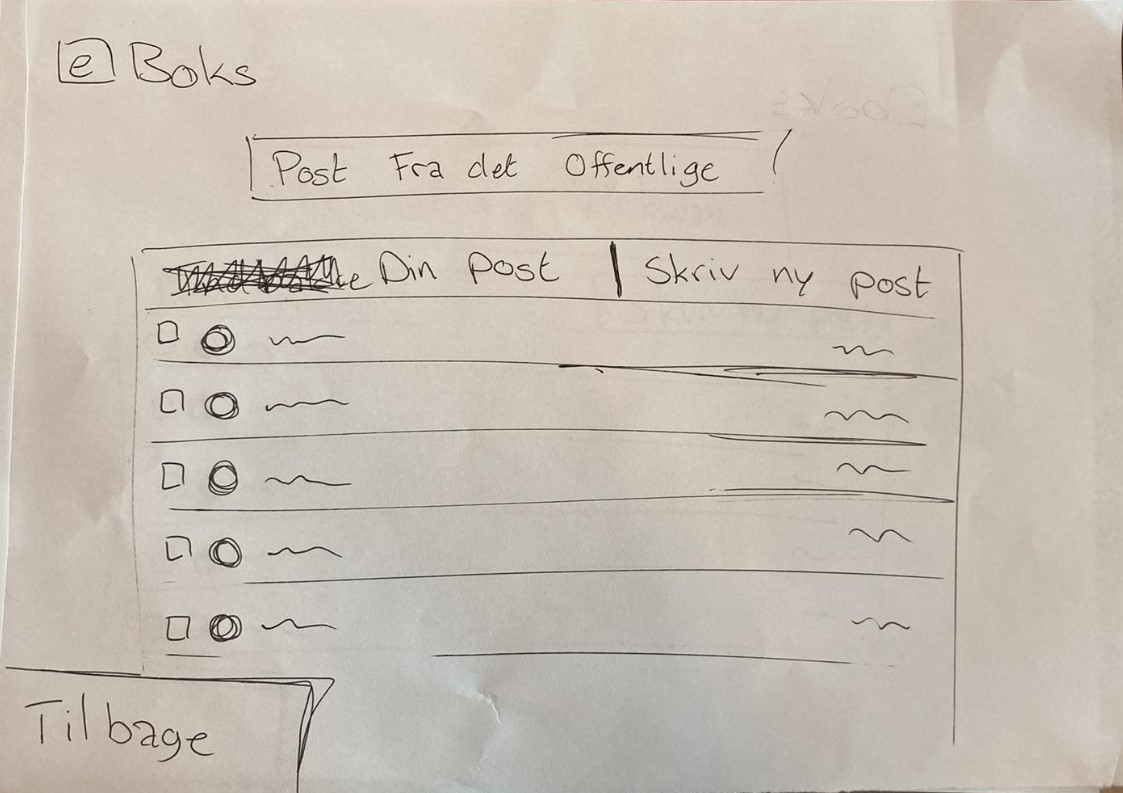 e Boks
Post Fra det Offentlige
Din post | Skriv ny post
Tilbage